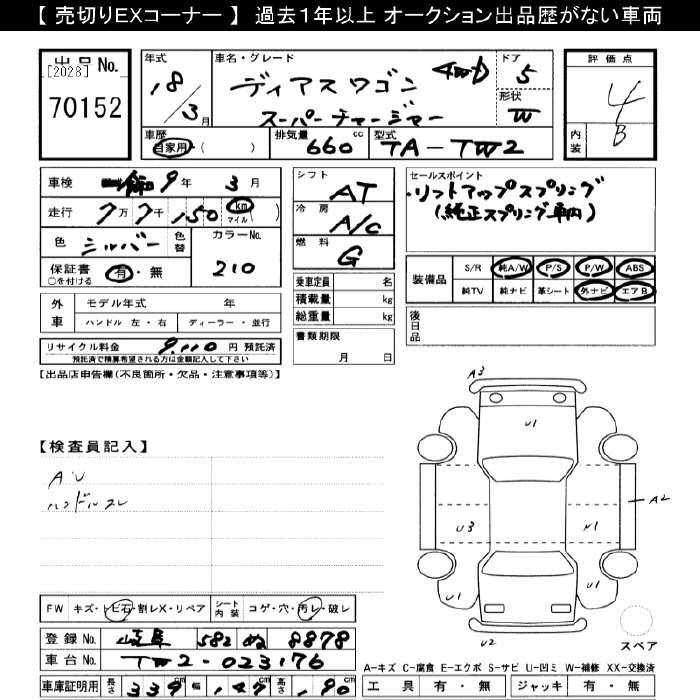 【 売切りEXコーナー 】 過去1年以上 オークション出品歴がない車両
出品No.
[2028]
70152
年式
18/3月
車名・グレード
ディアスワゴン 4WD
スーパーチャージャー
ドア
5
形状
W
評価点
4
内装
B
車歴
自家用・( )
排気量
660cc
型式
TA-TW2
車検
9年 3月
走行
7万7千150 km マイル ( )
色
シルバー
色替
カラーNo.
210
保証書
○を付ける
有・無
外車
モデル年式 年
ハンドル 左・右
ディーラー・並行
リサイクル料金 9,110円 預託済
預託済で精算希望される方は金額記入して下さい
シフト
AT
冷房
A/C
燃料
G
乗車定員 名
積載量 kg
総重量 kg
書類期限
月 日
セールスポイント
・リフトアップスプリング
(純正スプリング車内)
装備品
S/R 純A/W P/S P/W ABS
純TV 純ナビ 革シート 外ナビ エアB
後日品
【出品店申告欄(不良箇所・欠品・注意事項等)】
【検査員記入】
AU
ハンドルスレ
A3
U1
A2
U3
U1
U1
U2
スペア
FW キズ・トビ石・割レX・リペア
シート内装 コゲ・穴・汚レ・破レ
登録No. 岐阜 582 ぬ 8878
車台No. TW2-023176
車庫証明用 長さ 339cm 幅 147cm 高さ 190cm
A-キズ C-腐食 E-エクボ S-サビ U-凹ミ W-補修 XX-交換済
工具 有・無 ジャッキ 有・無